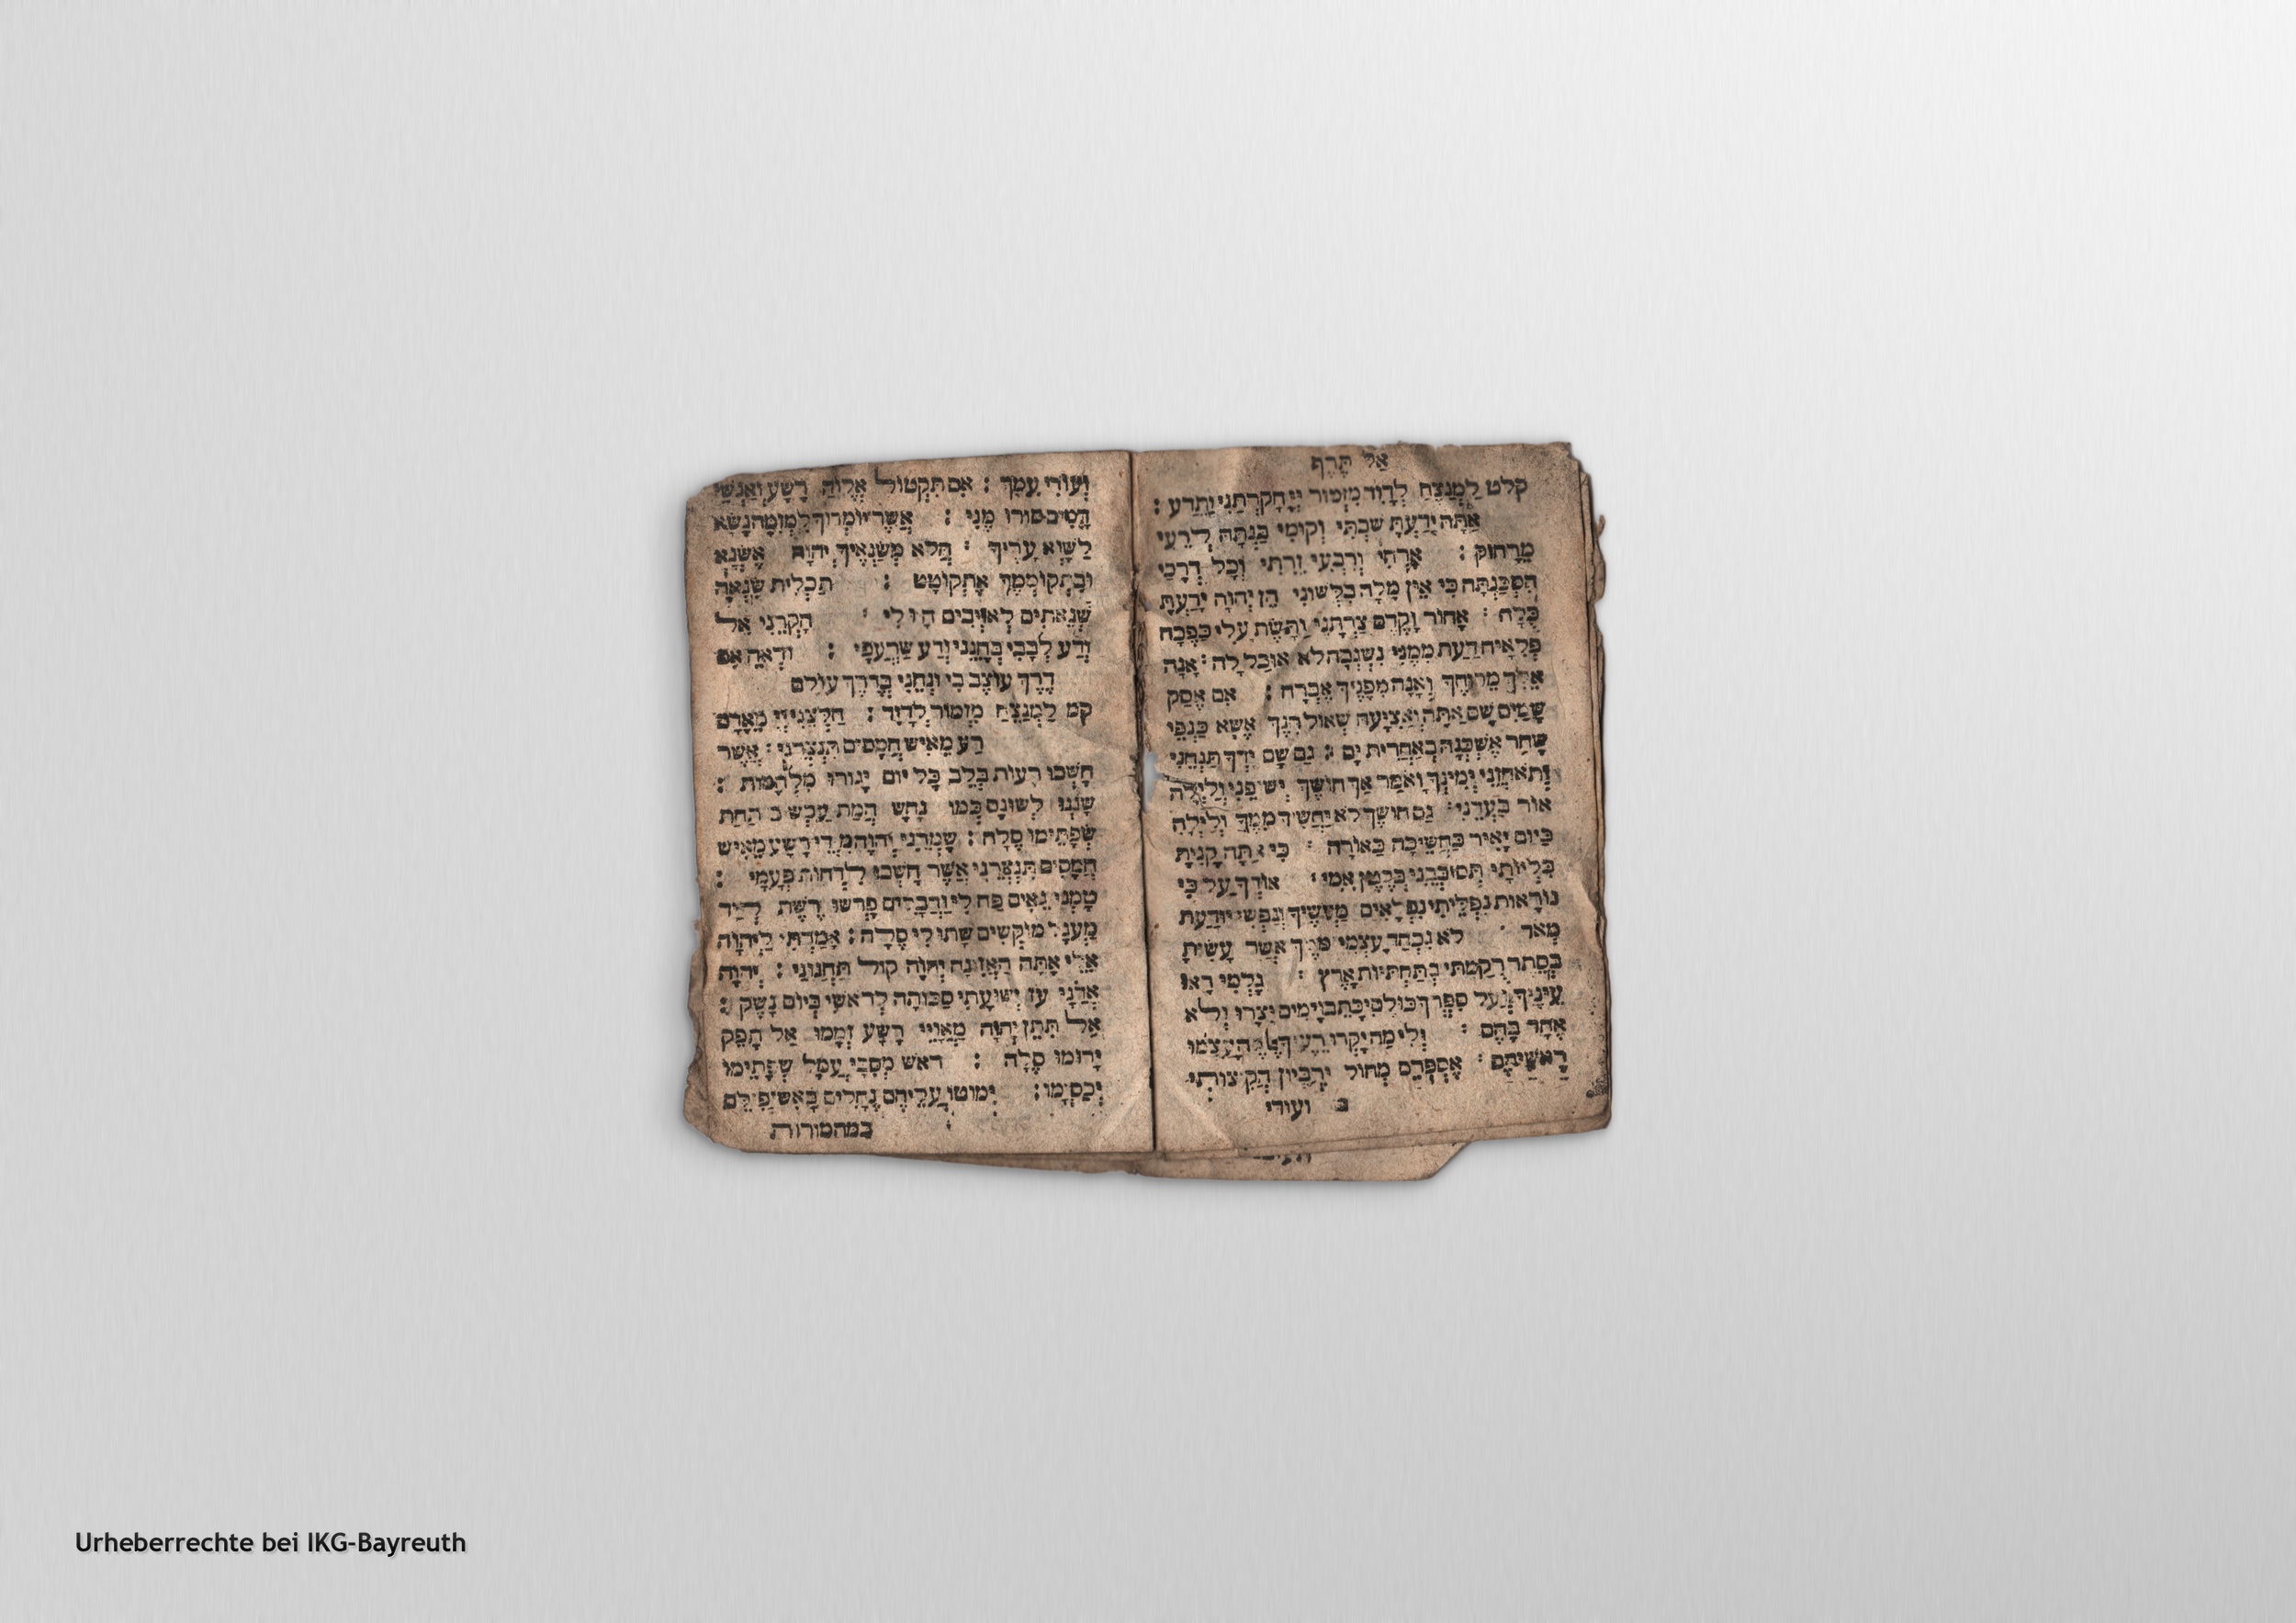 אַל תֶּרֶף
קלט לַמְנַצֵּחַ לְדָוִד מִזְמוֹר יְיָ חֲקַרְתַּנִי וַתֵּדַע :
אַתָּה יָדַעְתָּ שִׁבְתִּי וְקוּמִי בַּנְתָּה לְרֵעִי
מֵרָחוֹק : אָרְחִי וְרִבְעִי זֵרִתִי וְכָל דְּרָכַי
הִסְכַּנְתָּה כִּי אֵין מִלָּה בִלְשׁוֹנִי הֵן יְהוָה יָדַעְתָּ
כֻלָּהּ : אָחוֹר וָקֶדֶם צַרְתָּנִי וַתָּשֶׁת עָלַי כַּפֶּכָה
פְּלִאָיה דַעַת מִמֶּנִּי נִשְׂגְּבָה לֹא אוּכַל לָהּ : אָנָה
אֵלֵךְ מֵרוּחֶךָ וְאָנָה מִפָּנֶיךָ אֶבְרָח : אִם אֶסַּק
שָׁמַיִם שָׁם אָתָּה וְאַצִּיעָה שְּׁאוֹל הִנֶּךָּ אֶשָּׂא כַנְפֵי
שָׁחַר אֶשְׁכְּנָה בְּאַחֲרִית יָם : גַּם שָׁם יָדְךָ תַנְחֵנִי
וְתֹאחֲזֵנִי יְמִינֶךָ וָאֹמַר אַךְ חוֹשֶׁךְ יְשׁוּפֵנִי וְלַיְלָה
אוֹר בַּעֲדֵנִי : גַּם חוֹשֶׁךְ לֹא יַחֲשִׁיךְ מִמֶּךָ וְלַיְלָה
כַּיּוֹם יָאִיר כַּחֲשֵׁיכָה כָּאוֹרָה : כִּי אַתָּה קָנִיתָ
כִלְיוֹתָי תְּסוּכֵּנִי בְּבֶטֶן אִמִּי : אוֹדְךָ עַל כִּי
נוֹרָאוֹת נִפְלֵיתִי נִפְלָאִים מַעֲשֶׂיךָ וְנַפְשִׁי יוֹדַעַת
מְאֹד : לֹא נִכְחַד עָצְמִי מִמֶּךָּ אֲשֶׁר עֻשֵּׂיתִי
בְּסֵתֶר רֻקַּמְתִּי בְּתַחְתִּיּוֹת אָרֶץ : גָּלְמִי רָאוּ
עֵינֶיךָ וְעַל סִפְרְךָ כּוּלָּם יִכָּתֵבוּ יָמִים יֻצָּרוּ וְלֹא
אֶחָד בָּהֶם : וְלִי מַה יָּקְרוּ רֵעֶיךָ אֵל מֶה עָצְמוּ
רָאשֵׁיהֶם : אֶסְפְּרֵם מֵחוֹל יִרְבּוּן הֱקִיצוֹתִי
ב ועודי
וְעוֹדִי עִמָּךְ : אִם תִּקְטוֹל אֱלוֹהַּ רָשָׁע וְאַנְשֵׁי
דָמִים סוּרוּ מֶנִּי : אֲשֶׁר יוֹמְרוּךָ לִמְזִמָּה נָשָׂא
לַשָּׁוְא עָרֶיךָ : הֲלֹא מְשַׂנְאֶיךָ יְהוָה אֶשְׂנָא
וּבִתְקוֹמְמֶיךָ אֶתְקוֹטָט : תַּכְלִית שִׂנְאָה
שְׂנֵאתִים לְאוֹיְבִים הָיוּ לִי : חָקְרֵנִי אֵל
וְדַע לְבָבִי בְּחָנֵנִי וְדַע שַׂרְעַפָּי : וּרְאֵה אִם
דֶּרֶךְ עוֹצֶב בִּי וּנְחֵנִי בְּדֶרֶךְ עוֹלָם
קמ לַמְנַצֵּחַ מִזְמוֹר לְדָוִד : חַלְּצֵנִי יְיָ מֵאָדָם
רָע מֵאִישׁ חֲמָסִים תִּנְצְרֵנִי : אֲשֶׁר
חָשְׁבוּ רָעוֹת בְּלֵב כָּל יוֹם יָגוּרוּ מִלְחָמוֹת :
שָׁנֲנוּ לְשׁוֹנָם כְּמוֹ נָחָשׁ חֲמַת עַכְשׁוּב תַּחַת
שְׂפָתֵימוֹ סֶלָה : שָׁמְרֵנִי יְהוָה מִידֵי רָשָׁע מֵאִישׁ
חֲמָסִים תִּנְצְרֵנִי אֲשֶׁר חָשְׁבוּ לִדְחוֹת פְּעָמָי :
טָמְנוּ גֵאִים פַּח לִי וַחֲבָלִים פָּרְשׂוּ רֶשֶׁת לְיַד
מַעְגָּל מוֹקְשִׁים שָׁתוּ לִי סֶלָה : אָמַרְתִּי לַיהוָה
אֵלִי אָתָּה הַאֲזִינָה יְהוָה קוֹל תַּחֲנוּנָי : יְהוִה
אֲדֹנָי עֹז יְשׁוּעָתִי סַכּוֹתָה לְרֹאשִׁי בְּיוֹם נָשֶׁק :
אַל תִּתֵּן יְהוָה מַאֲוַיֵּי רָשָׁע זְמָמוֹ אַל תָּפֵק
יָרוּמוּ סֶלָה : רֹאשׁ מְסִבָּי עֲמַל שְׂפָתֵימוֹ
יְכַסֵּמוֹ : יִמּוֹטוּ עֲלֵיהֶם גֶּחָלִים בָּאֵשׁ יַפִּילֵם
במהמורות
Urheberrechte bei IKG-Bayreuth